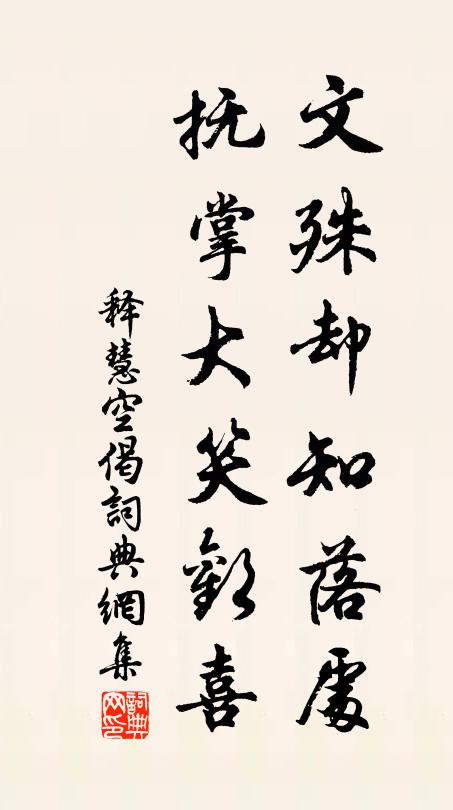 文殊却知落處
抚掌大笑歡喜
释慧空偈詞典網集
詞典网印